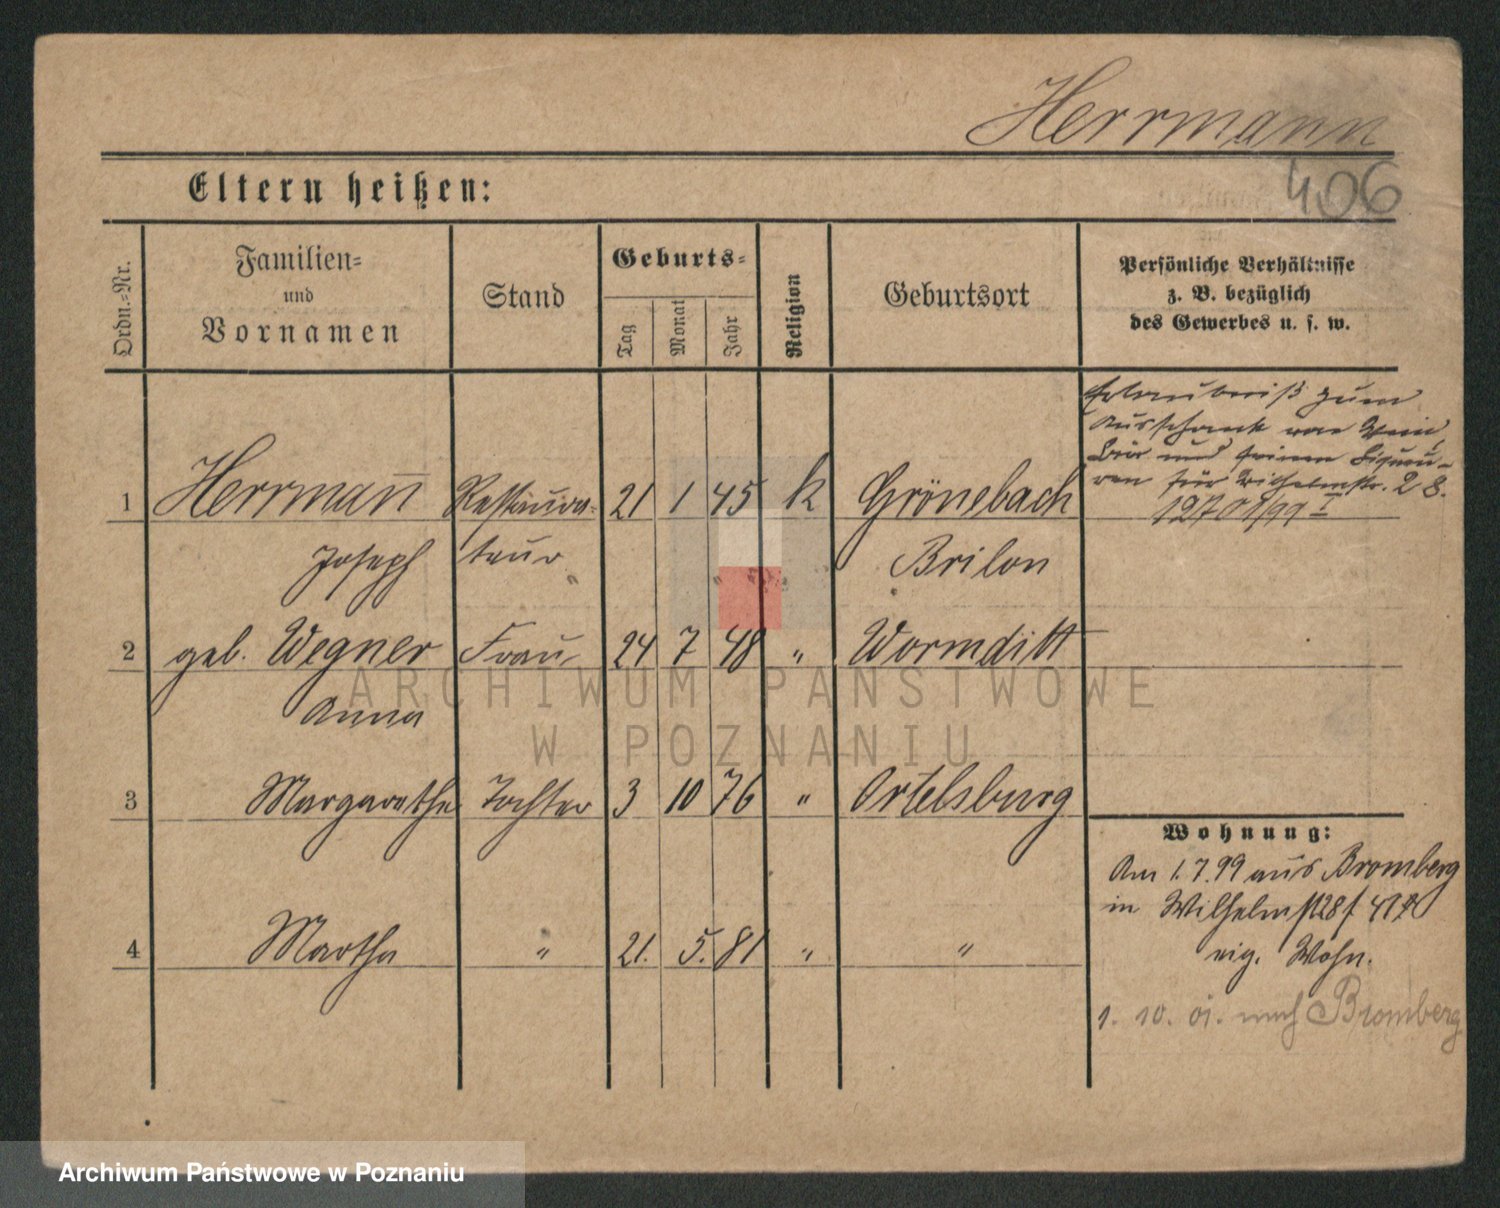 Herrmann
406
Eltern heißen:
Ordn.-Nr.
Familien-
und
Vornamen
Stand
Geburts-
Tag
Monat
Jahr
Religion
Geburtsort
Persönliche Verhältnisse
z. B. bezüglich
des Gewerbes u. s. w.
Erlaubniß zum
Ausschank von Wein,
Bier und feinen Liqueu-
ren für Wilhelmstr. 28.
12701/99 I
1 Herrmann Restaura- 21 1 45 k Grönebach
Joseph teur Brilon
2 geb. Wegner Frau 24 7 48 " Wormditt
Anna
3 Margarethe Tochter 3 10 76 " Ortelsburg
4 Martha " 21. 5. 81 " "
Wohnung:
Am 1.7.99 aus Bromberg
in Wilhelmst 28
eig. Wohn.
1. 10. 01. nach Bromberg
ARCHIWUM PAŃSTWOWE
W POZNANIU
Archiwum Państwowe w Poznaniu